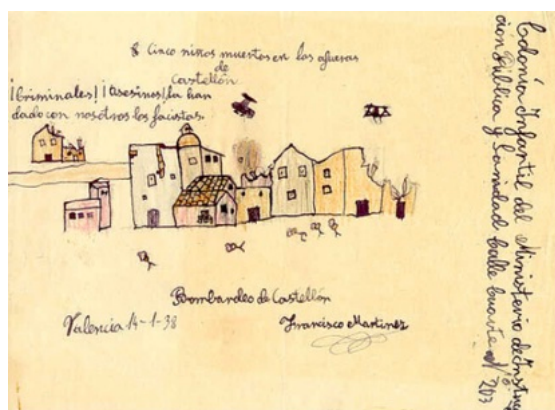 8 Cinco niños muertos en las afueras
de
Castellón
¡Criminales! ¡Asesinos! la han
dado con nosotros los facistas.
Bombardeo de Castellón
Valencia 14-1-38
Francisco Martinez
Colonia Infantil del Ministerio de Instruc
ción Pública y Sanidad Calle Cuarte Nº 203